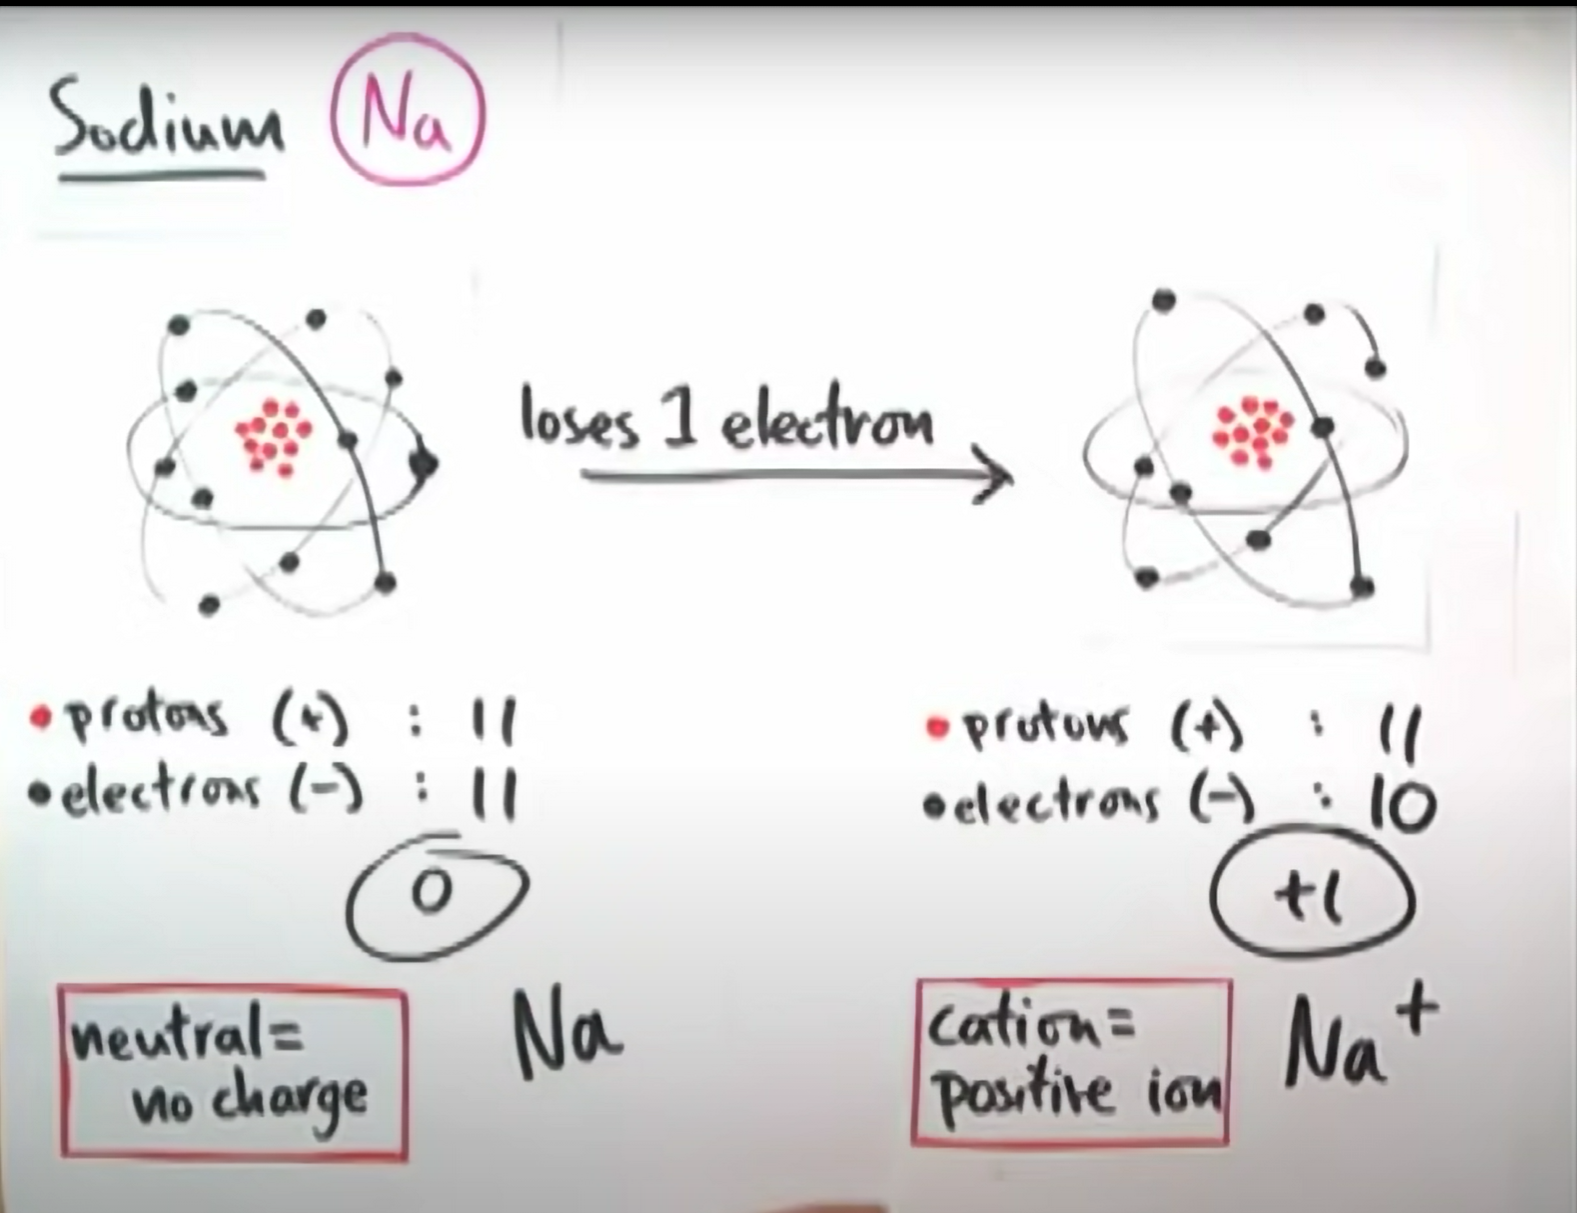 Sodium Na
loses 1 electron
protons (+) : 11
electrons (-) : 11
0
neutral=
no charge
Na
protons (+) : 11
electrons (-) : 10
+1
cation=
positive ion
Na+